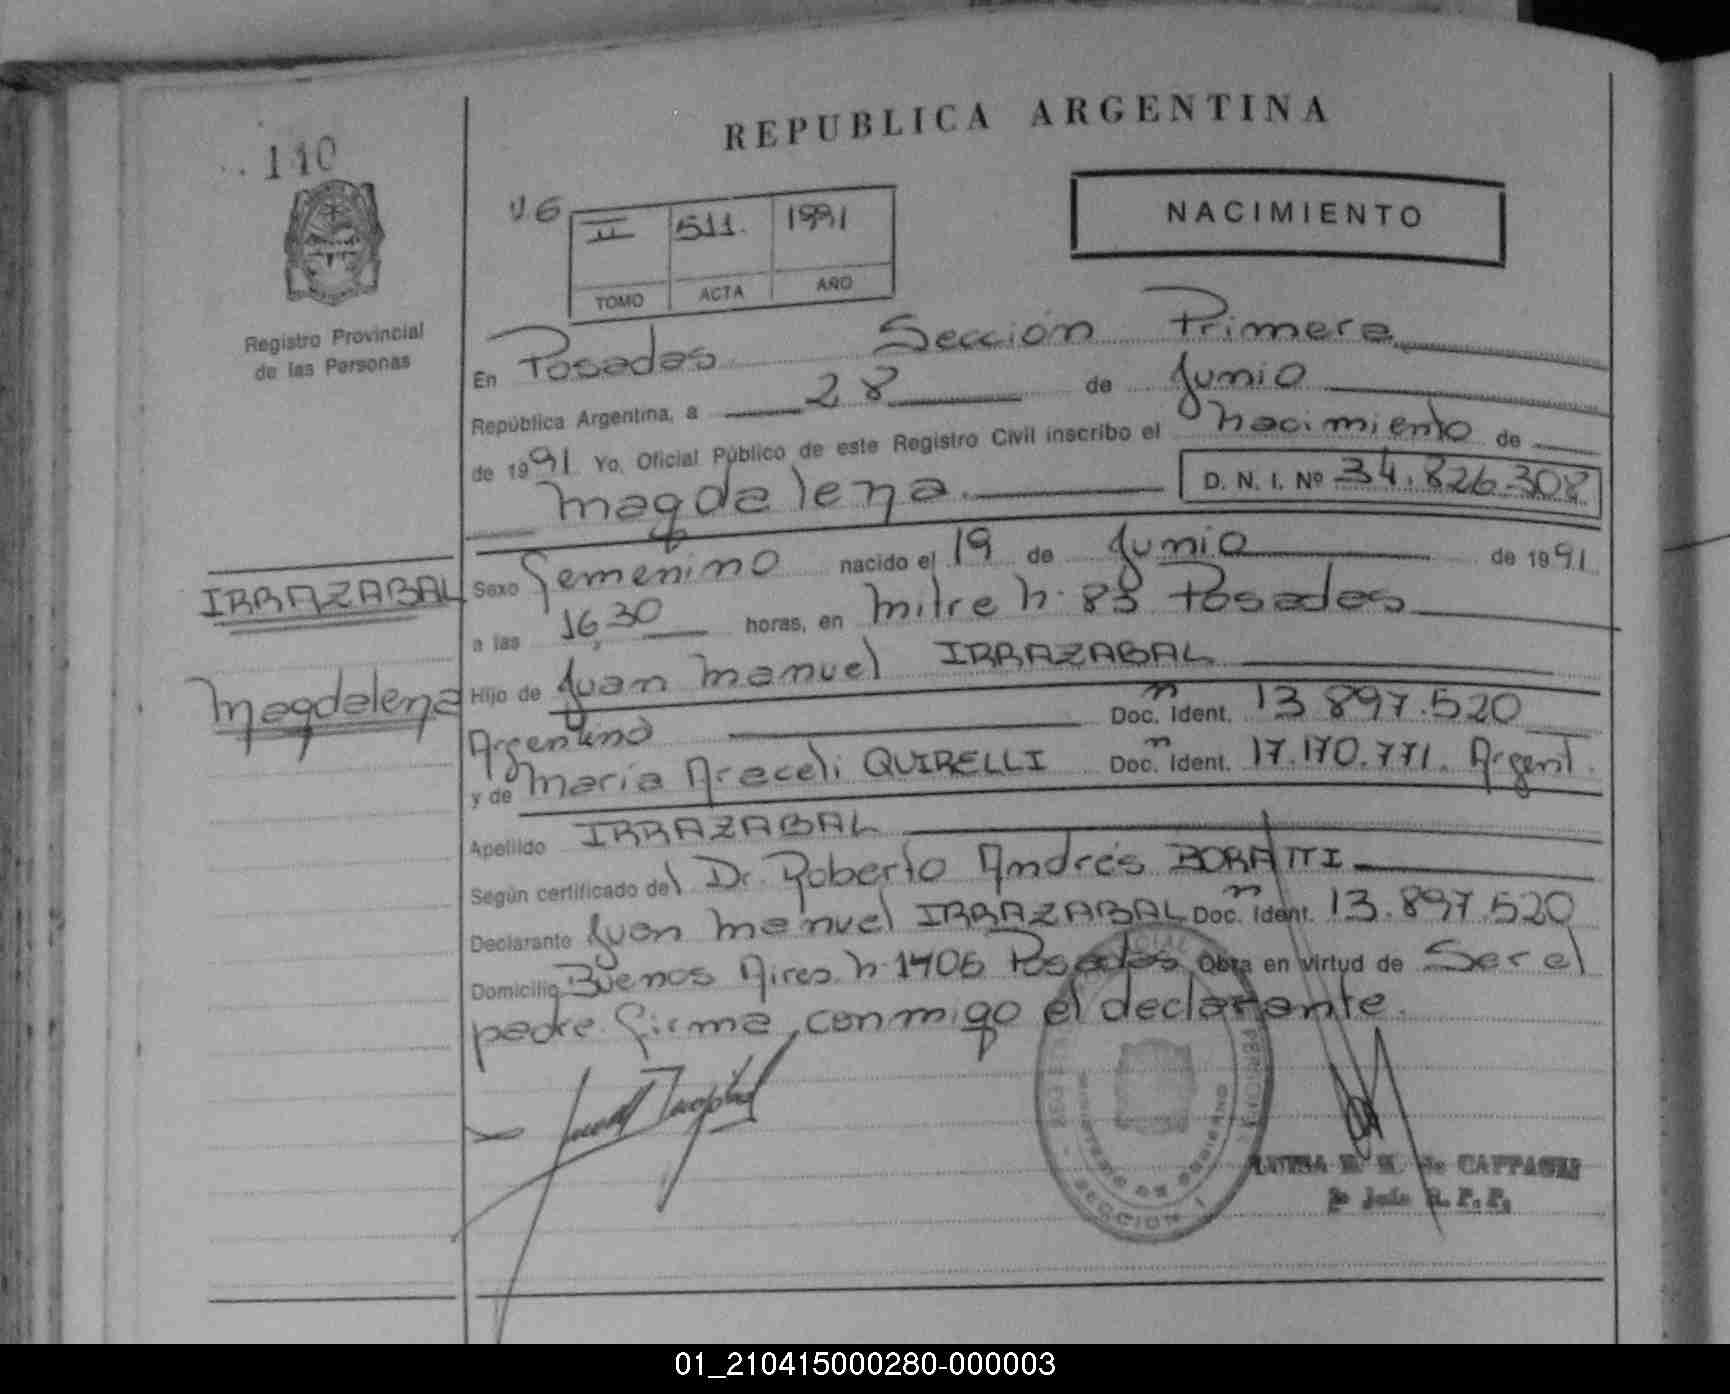 REPUBLICA ARGENTINA
110
NACIMIENTO
II 511. 1991
TOMO ACTA AÑO
Registro Provincial
de las Personas
En Posadas Sección Primera
República Argentina, a 28 de Junio
de 1991 Yo, Oficial Público de este Registro Civil inscribo el nacimiento de
Magdalena. D. N. I. Nº 34.826.308
IRRAZABAL
Magdalena
Sexo Femenino nacido el 19 de Junio de 1991
a las 16,30 horas, en Mitre n. 83 Posadas
Hijo de Juan Manuel IRRAZABAL
Argentino Doc. Ident. 13.897.520
y de Maria Araceli QUIRELLI Doc. Ident. 17.170.771. Argent.
Apellido IRRAZABAL
Según certificado del Dr. Roberto Andrés BORATTI
Declarante Juan Manuel IRRAZABAL Doc. Ident. 13.897.520
Domicilio Buenos Aires n. 1406 Posadas Obra en virtud de Ser el
padre. firma conmigo el declarante.
MINISTERIO DE GOBIERNO
SECCION 1
de CAPPAGLI
2º Jefe R. P. P.
01_210415000280-000003